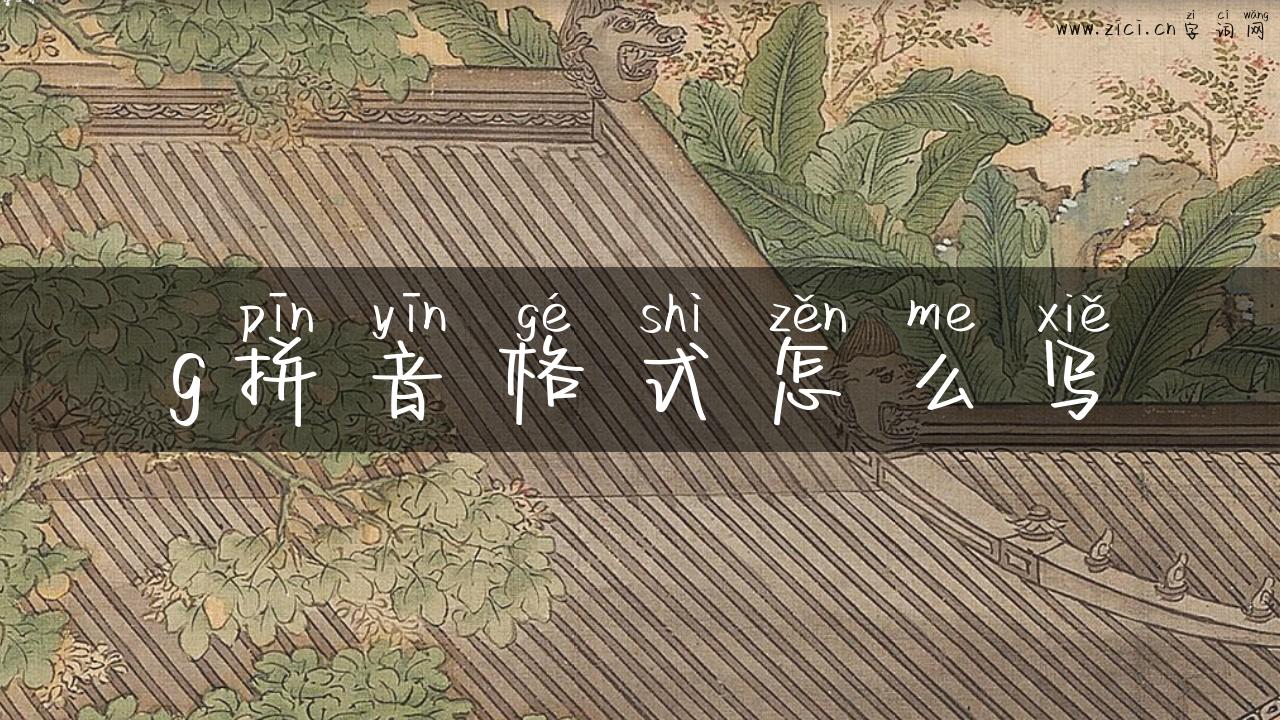 zì cí wǎng
www.zici.cn 字词网
pīn yīn gé shì zěn me xiě
g拼音格式怎么写